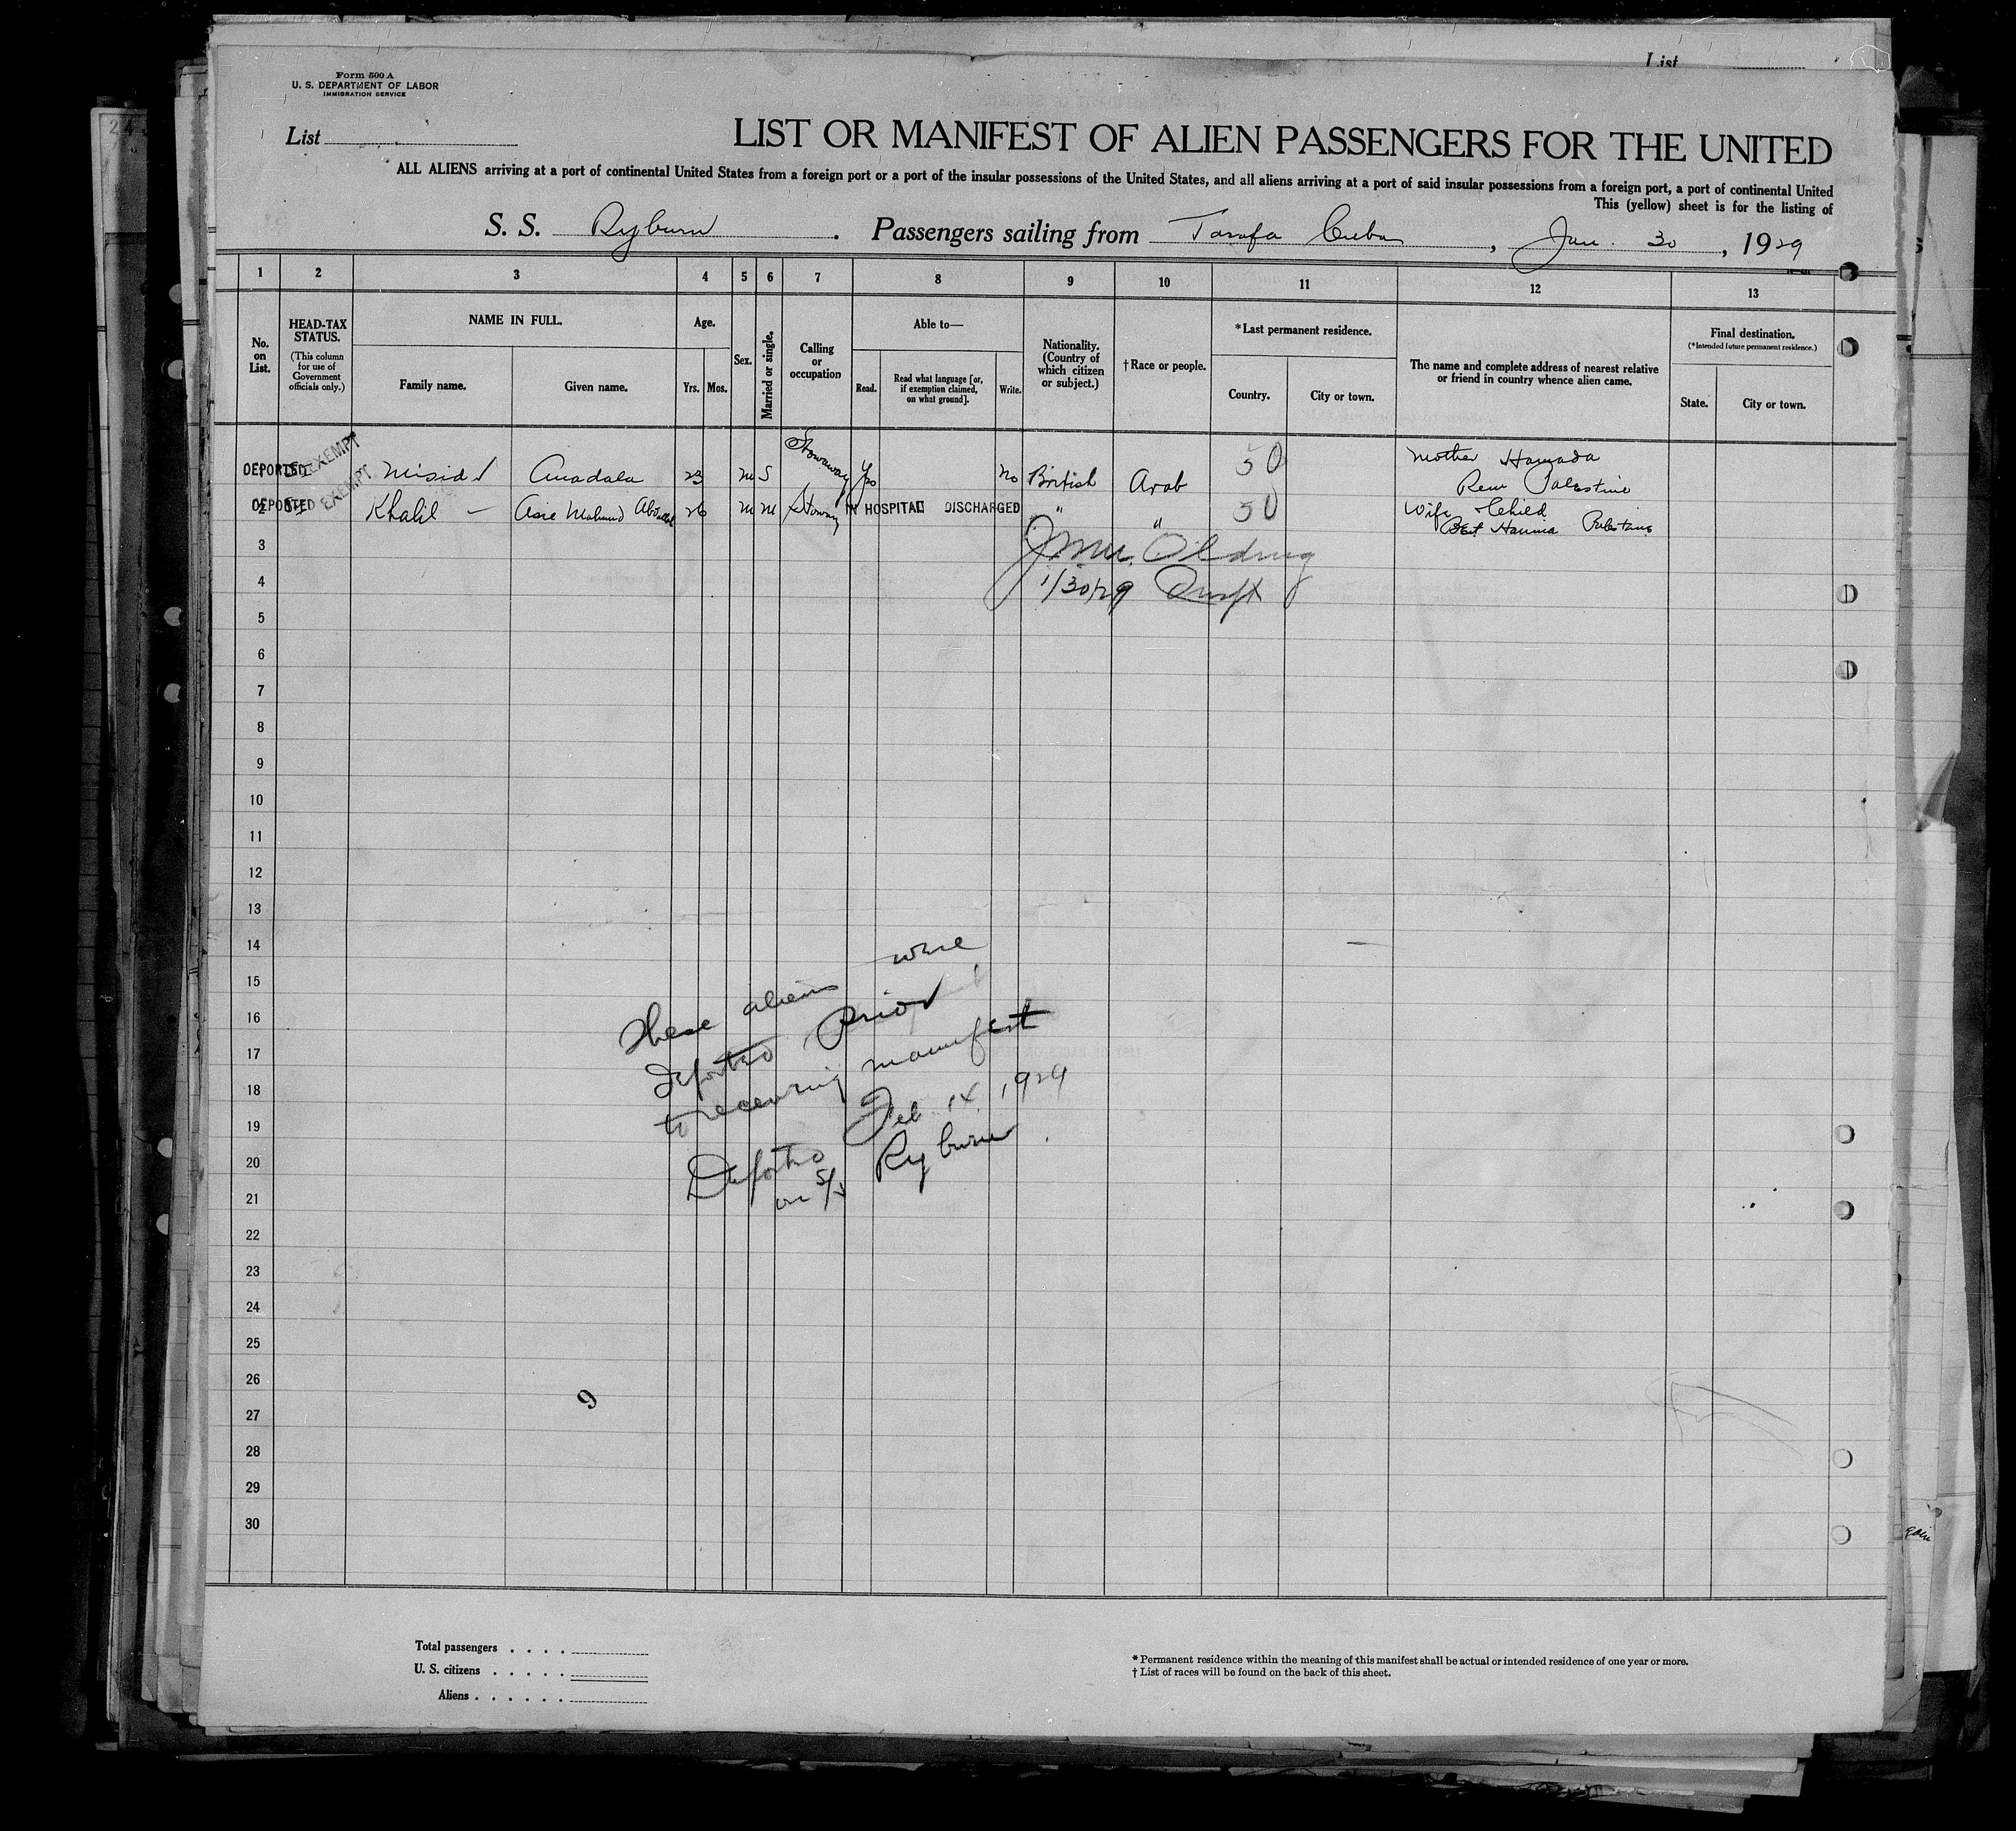 List
Form 500 A
U. S. DEPARTMENT OF LABOR
IMMIGRATION SERVICE
List
LIST OR MANIFEST OF ALIEN PASSENGERS FOR THE UNITED
ALL ALIENS arriving at a port of continental United States from a foreign port or a port of the insular possessions of the United States, and all aliens arriving at a port of said insular possessions from a foreign port, a port of continental United
This (yellow) sheet is for the listing of
S. S. Ryburn . Passengers sailing from Tarafa Cuba , Jan. 30 , 1929
1 2 3 4 5 6 7 8 9 10 11 12 13
No. on List.
HEAD-TAX STATUS.
(This column for use of Government officials only.)
NAME IN FULL.
Family name. Given name.
Age.
Yrs. Mos.
Sex.
Married or single.
Calling or occupation
Able to—
Read. Read what language [or, if exemption claimed, on what ground]. Write.
Nationality. (Country of which citizen or subject.)
† Race or people.
*Last permanent residence.
Country. City or town.
The name and complete address of nearest relative or friend in country whence alien came.
Final destination.
(*Intended future permanent residence.)
State. City or town.
DEPORTED EXEMPT Misid 23 m S Stowaway Yes No British Arab 50 Mother Hamada
Palestine
2 DEPORTED EXEMPT Khalil — Asie Mahmud 26 m m Stowaway IN HOSPITAL DISCHARGED " " 50 Wife Child
Hanina Palestine
3
4 1/30/29
5
6
7
8
9
10
11
12
13
14
15
16
17
18
19
20
21
22
23
24
25
26
27
28
29
30
These aliens were
Deported Prior
to receiving manifest
Deported Feb 14 1929
on S/S Ryburn .
9
Total passengers . . . .
U. S. citizens . . . . .
Aliens . . . . . .
* Permanent residence within the meaning of this manifest shall be actual or intended residence of one year or more.
† List of races will be found on the back of this sheet.